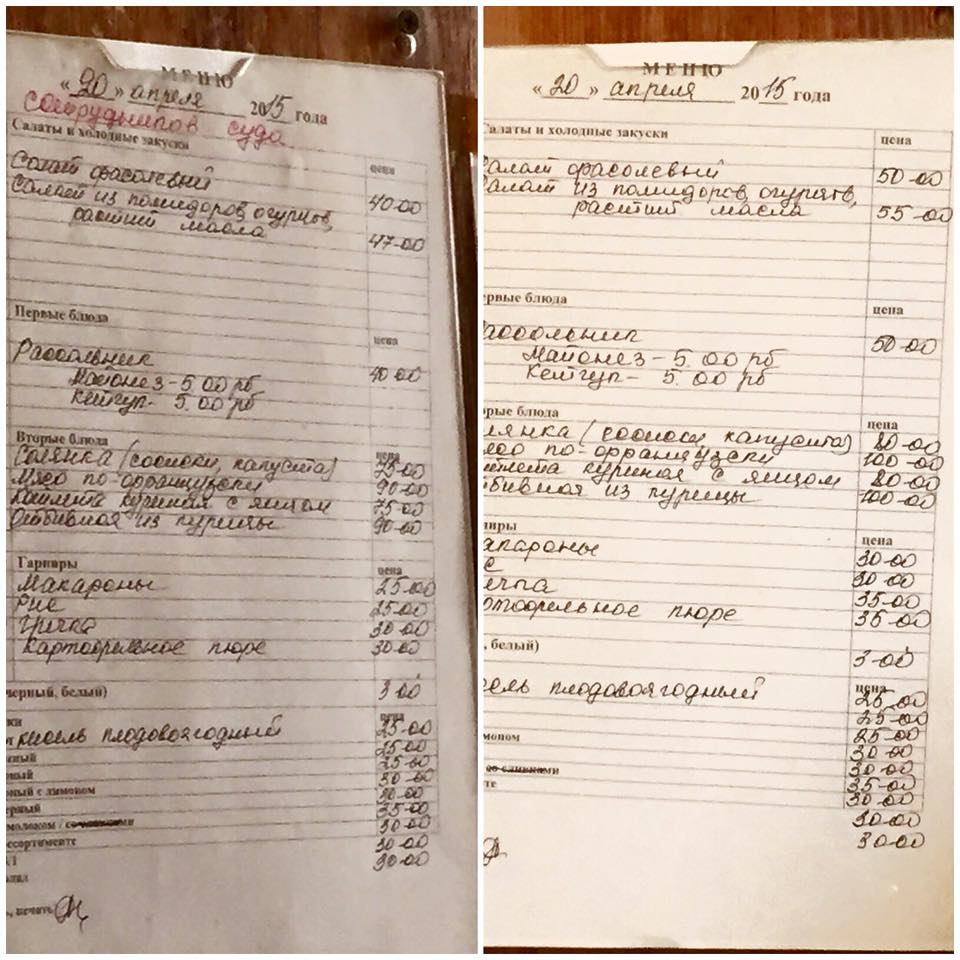 МЕНЮ
« 20 » апреля 2015 года
сотрудников суда
Салаты и холодные закуски цена
Салат фасолевый 40-00
Салат из помидоров, огурцов,
растит масла 47-00
Первые блюда цена
Рассольник 40-00
Майонез - 5.00 рб
Кетчуп - 5.00 рб
Вторые блюда цена
Солянка (сосиски, капуста) 75-00
Мясо по-французски 90-00
Котлета куриная с яйцом 75-00
Отбивная из курицы 90-00
Гарниры цена
Макароны 25-00
Рис 25-00
Гречка 30-00
Картофельное пюре 30-00
черный, белый) 3-00
ки цена
кисель плодовоягодный 25-00
25-00
ный 25-00
30-00
рный с лимоном 30-00
черный 35-00
молоком / 30-00
ссортименте 30-00
30-00
, печать
МЕНЮ
« 20 » апреля 2015 года
Салаты и холодные закуски цена
Салат фасолевый 50-00
Салат из помидоров, огурцов,
растит масла 55-00
ервые блюда цена
Рассольник 50-00
Майонез - 5.00 рб
Кетчуп - 5.00 рб
орые блюда цена
лянка (сосиски, капуста) 80-00
ясо по-французски 100-00
отлета куриная с яйцом 80-00
тбивная из курицы 100-00
ниры цена
акароны 30-00
с 30-00
ечка 35-00
ртофельное пюре 35-00
, белый) 3-00
цена
ель плодовоягодный 25-00
25-00
25-00
имоном 30-00
30-00
со сливками 35-00
те 30-00
30-00
30-00